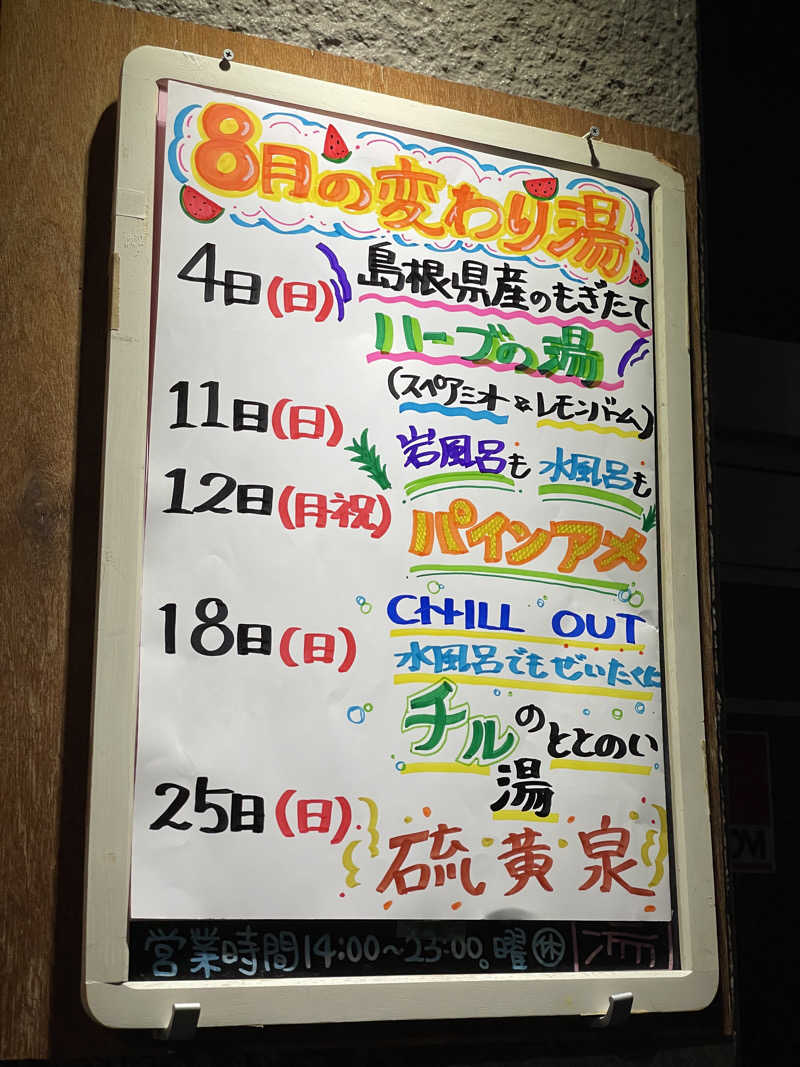 8月の変わり湯
4日(日) 島根県産のもぎたて
ハーブの湯
(スペアミント&レモンバーム)
11日(日) 岩風呂も 水風呂も
12日(月祝) パインアメ
18日(日) CHILL OUT
水風呂でもぜいたくに
チルのととのい
湯
25日(日) 硫黄泉
営業時間14:00~23:00。曜㊡